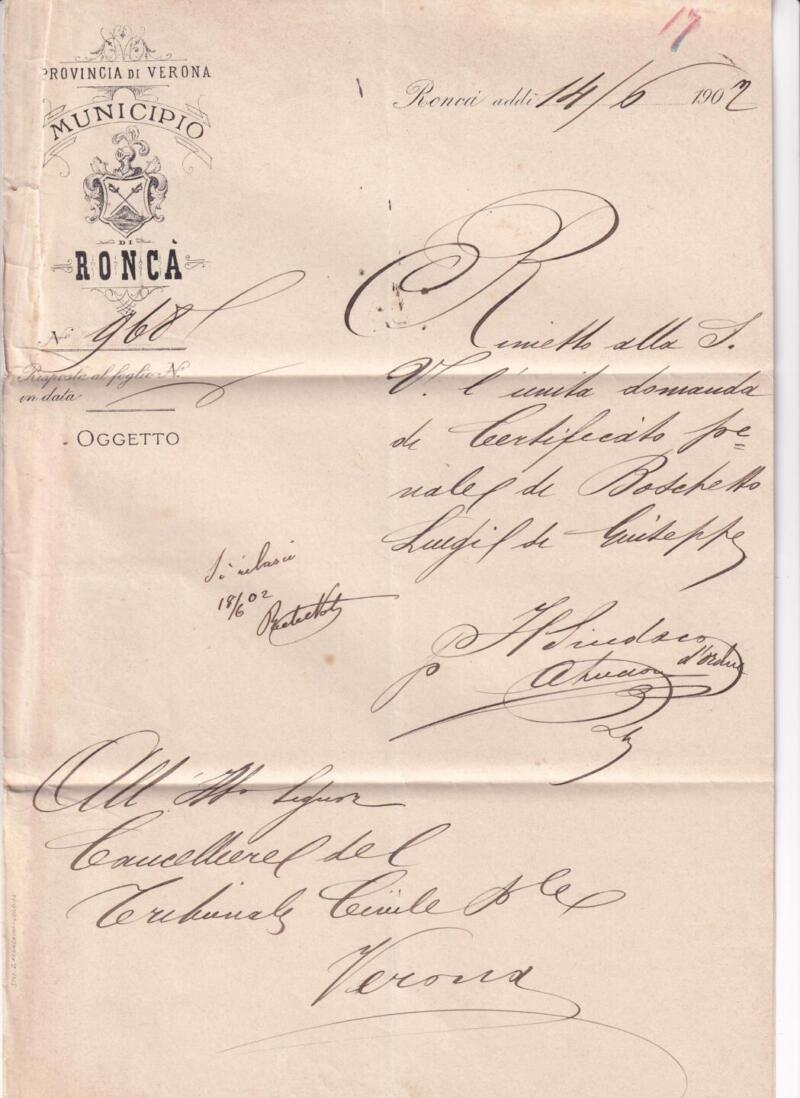 17
PROVINCIA DI VERONA
MUNICIPIO
DI
RONCÀ
Roncà addì 14/6 1902
N.º 968
Risposta al foglio N.
in data
OGGETTO
Rimetto alla S.
V. l'unita domanda
di Certificato pe=
nale di Boschetto
Luigi di Giuseppe
Si rilasci
18/6 02
p Il Sindaco
All' Ill.mo Signor
Cancelliere del
Tribunale Civile P.le
Verona